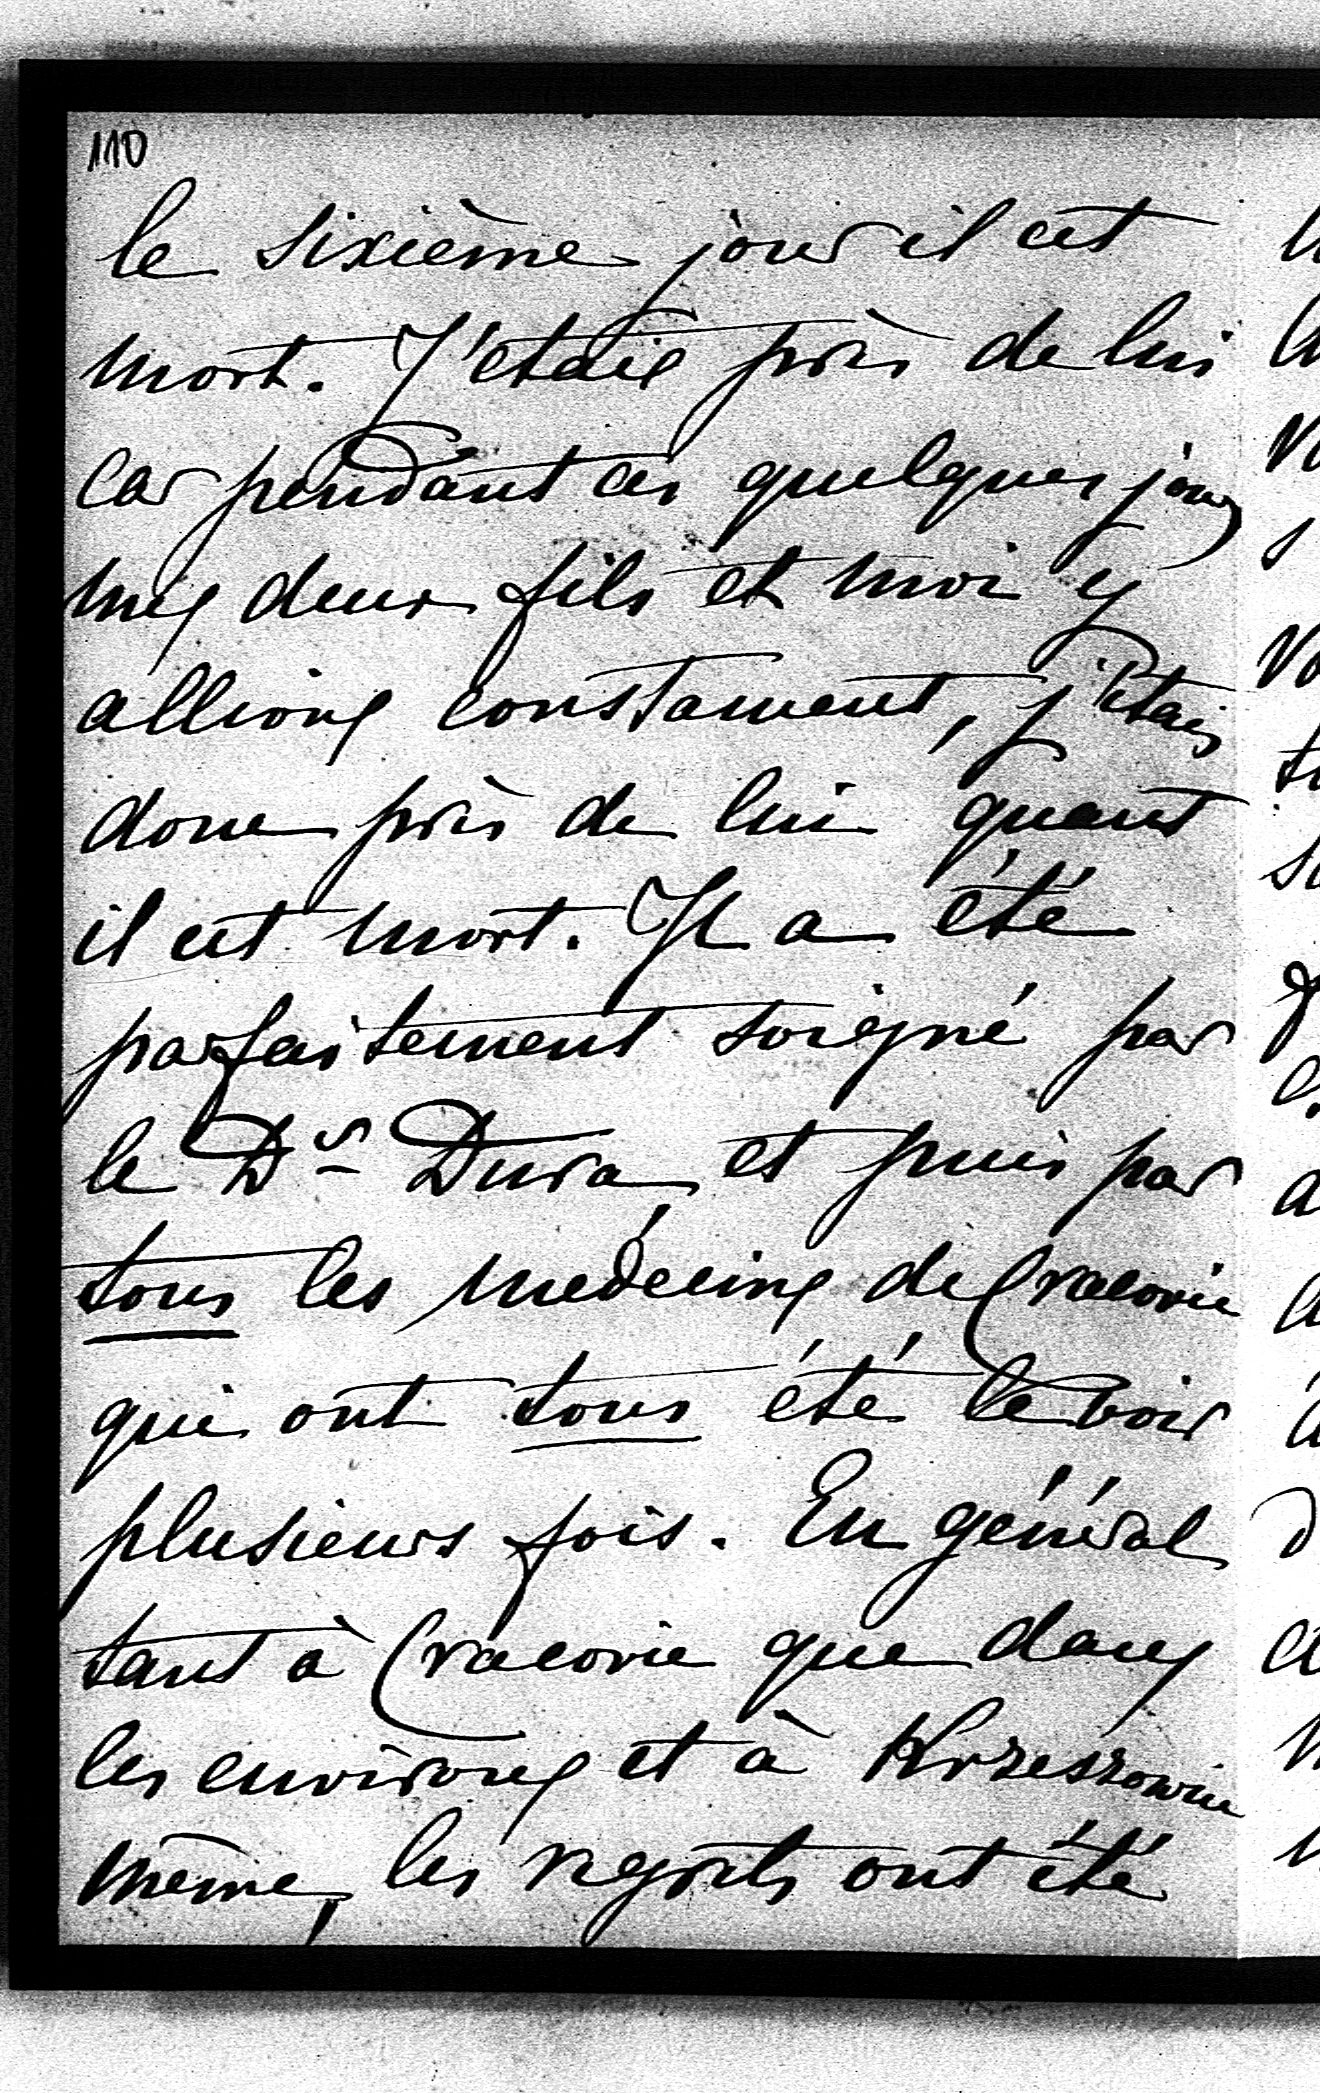 110
le sixième jour il est
mort. J'étais près de lui
car pendant ces quelques jours
mes deux fils et moi y
allions constament, j'étais
donc près de lui quant
il est mort. Il a été
parfaitement soigné par
le Dr Dura et puis par
tous les médecins de Cracovie
qui ont tous été le voir
plusieurs fois. En général
tant à Cracovie que dans
les environs et à Krzeszowice
même, les regrets ont été